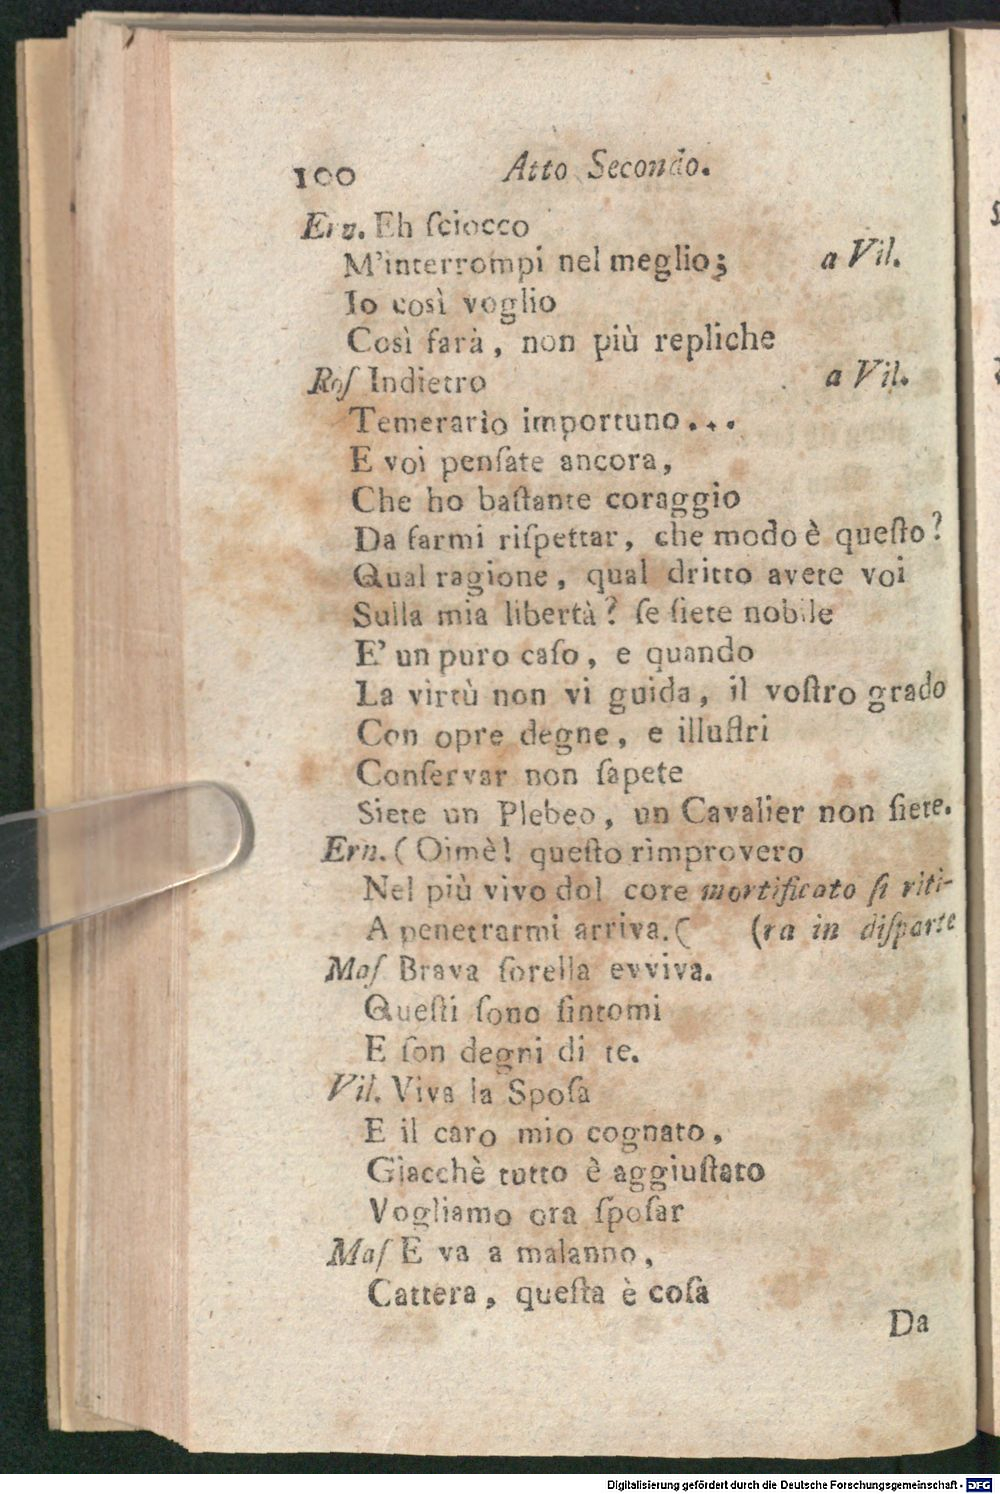 100 Atto Secondo.
Ern. Eh ſciocco
M'interrompi nel meglio; a Vil.
Io così voglio
Così farà, non più repliche
Roſ Indietro a Vil.
Temerario importuno...
E voi penſate ancora,
Che ho baſtante coraggio
Da farmi riſpettar, che modo è queſto?
Qual ragione, qual dritto avete voi
Sulla mia libertà? ſe ſiete nobile
E' un puro caſo, e quando
La virtù non vi guida, il voſtro grado
Con opre degne, e illuſtri
Conſervar non ſapete
Siete un Plebeo, un Cavalier non ſiete.
Ern. (Oimè! queſto rimprovero
Nel più vivo dol core mortificato ſi riti-
A penetrarmi arriva.( (ra in diſparte
Maſ Brava ſorella evviva.
Queſti ſono ſintomi
E ſon degni di te.
Vil. Viva la Spoſa
E il caro mio cognato,
Giacchè tutto è aggiuſtato
Vogliamo ora ſpoſar
Maſ E va a malanno,
Cattera, queſta è coſa
Da
Digitalisierung gefördert durch die Deutsche Forschungsgemeinschaft - DFG